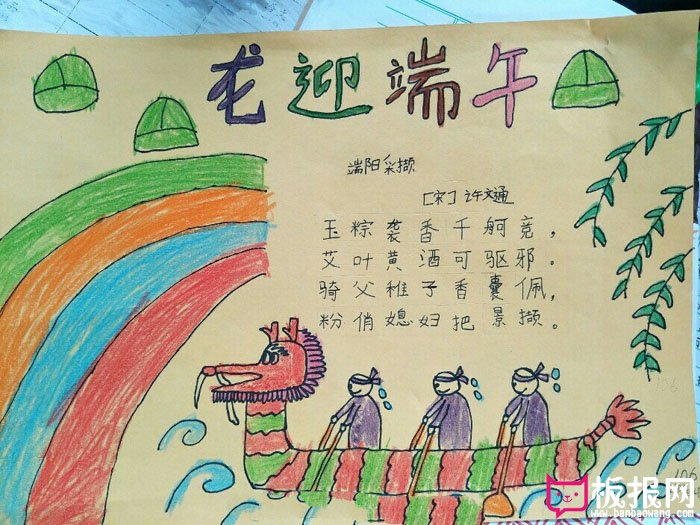 龙迎端午
端阳采撷
[宋]许文通
玉粽袭香千舸竞，
艾叶黄酒可驱邪。
骑父稚子香囊佩，
粉俏媳妇把景撷。
106
106
板报网
www.banbaowang.com